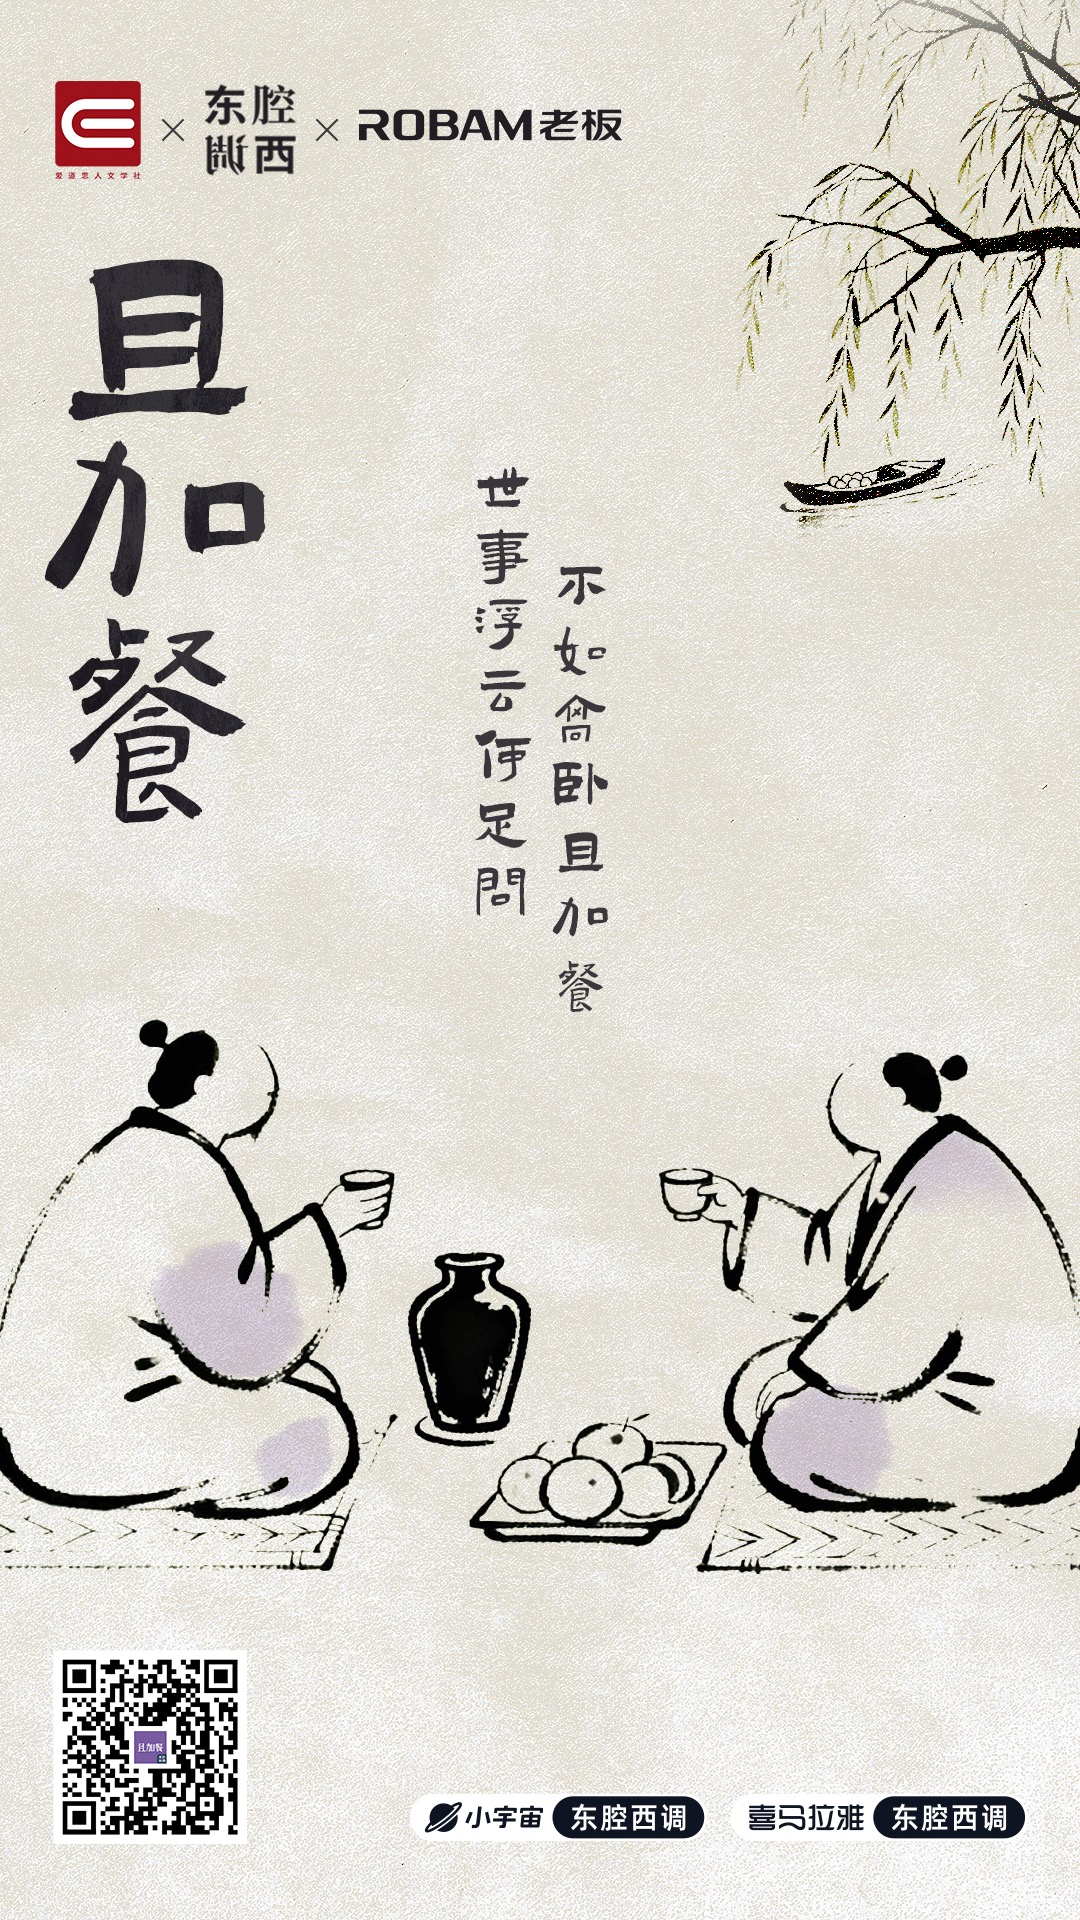 爱道思人文学社
×
东腔西调
×
ROBAM老板
且加餐
世事浮云何足問
不如高卧且加餐
且加餐
小宇宙 东腔西调
喜马拉雅 东腔西调